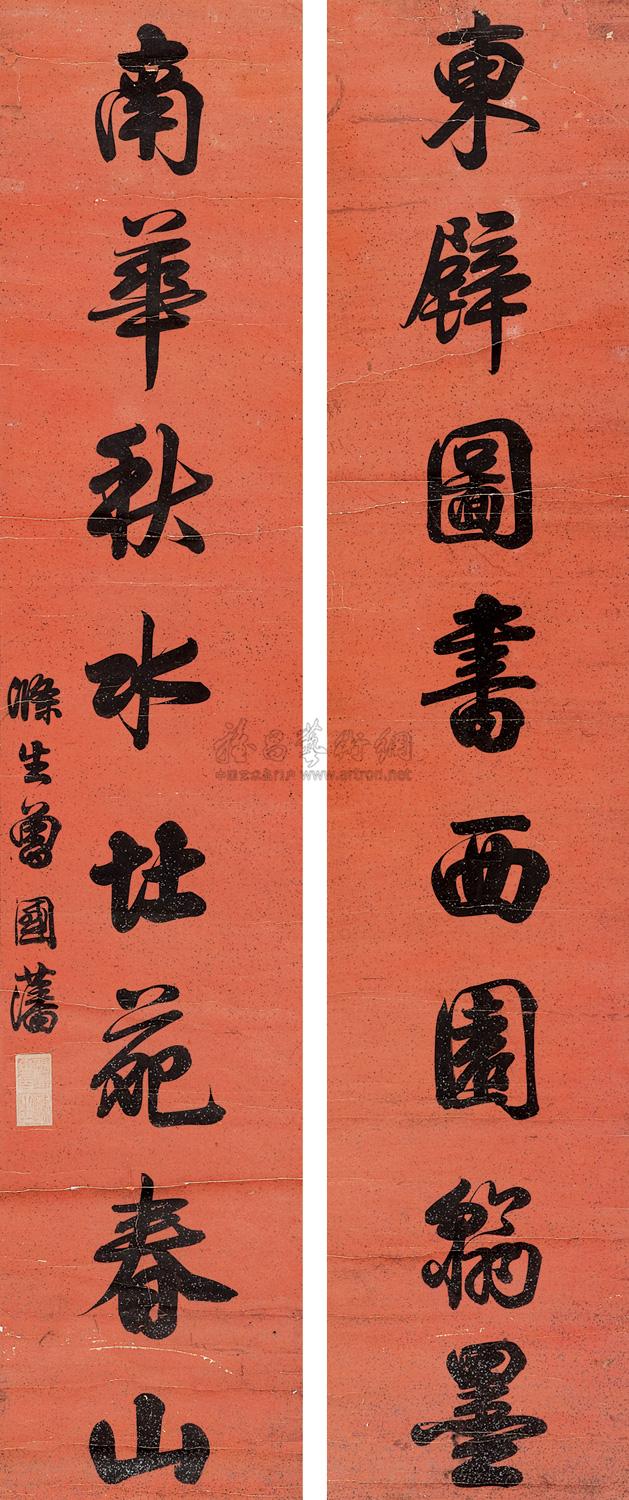 東壁圖書西園翰墨
南華秋水北苑春山
滌生曾國藩
雅昌藝術網
中国艺术品门户 www.artron.net